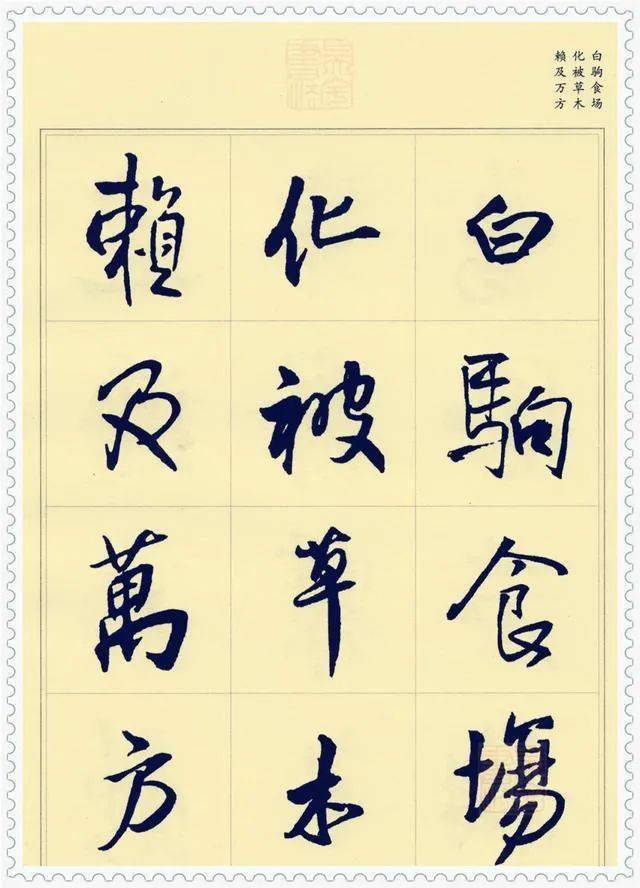 白驹食场
化被草木
赖及万方
白駒食場
化被草木
賴及萬方